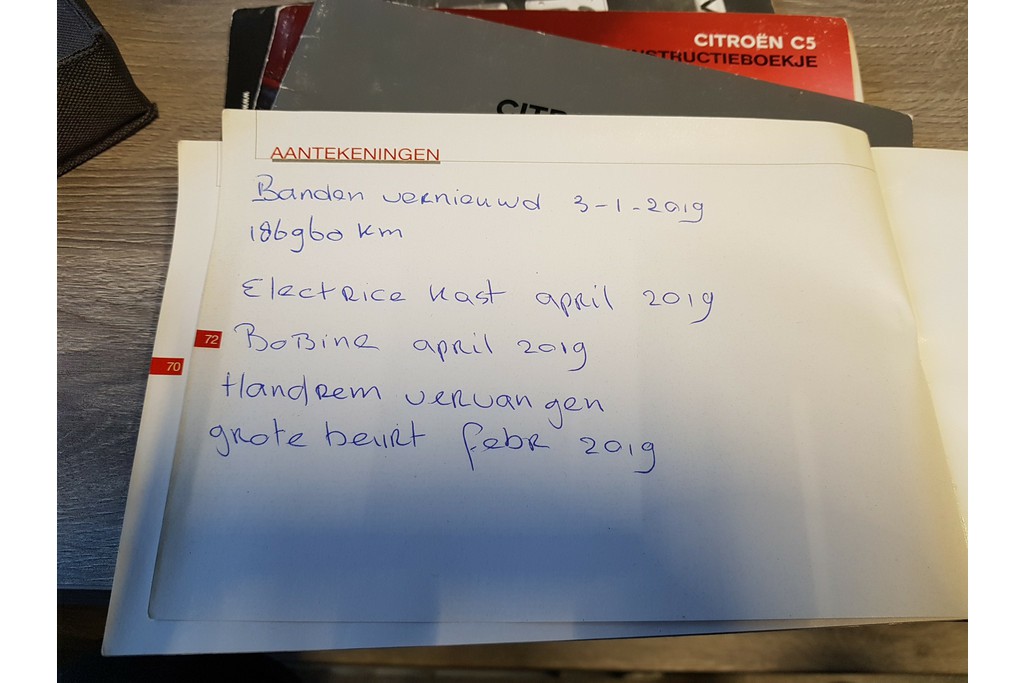 CITROËN C5
INSTRUCTIEBOEKJE
AANTEKENINGEN
Banden vernieuwd 3-1-2019
186960 km
Electrice kast april 2019
72 BoBine april 2019
70
Handrem vervangen
grote beurt febr 2019